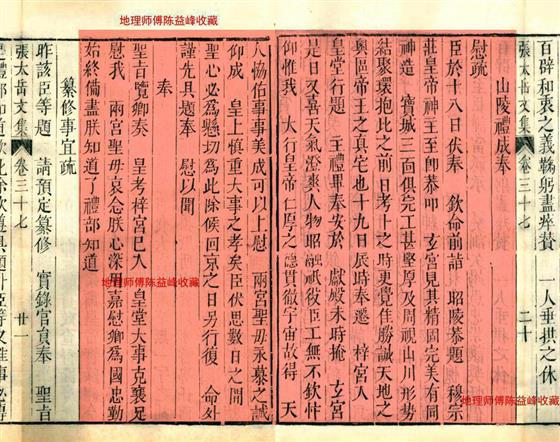 地理师傅陈益峰收藏
百辟和衷之義鞠躬盡瘁贊 一人垂拱之休
張太岳文集 卷三十七 二十
山陵禮成奉
慰疏
臣於十八日伏奉 欽命前詣 昭陵恭題 穆宗
莊皇帝神主至卽恭叩 玄宮見其精固完美有同
神造 寶城三面俱完工甚堅厚及周視山川形勢
結聚環抱比之前日考卜之時更覺佳勝誠天地之
奧區帝王之真宅也十九日辰時奉遷 梓宮入
皇堂行題 主禮畢奉安於 獻殿未時掩 玄宮
是日又喜天氣澄爽人物昭融祗役臣工無不欽忭
惟我 大行皇帝仁厚之德貫徹宇宙故得 天
人協佑事事美成可以上慰 兩宮聖母永慕之誠
仰成 皇上慎重大事之孝矣臣伏思數日之間
聖心必爲懸切爲此除候回京之日另行復 命外
謹先具題奉 慰以聞
奉
聖旨覽卿奏 皇考梓宮已入 皇堂大事克襄足
慰我 兩宮聖毋哀念朕心深用嘉慰卿爲國忠勤
始終備盡朕知道了禮部知道
纂修事宜疏
昨該臣等題 請預定纂修 實錄官員奉 聖旨
張太岳文集 卷三十七 廿一
地理师傅陈益峰收藏
地理师傅陈益峰收藏